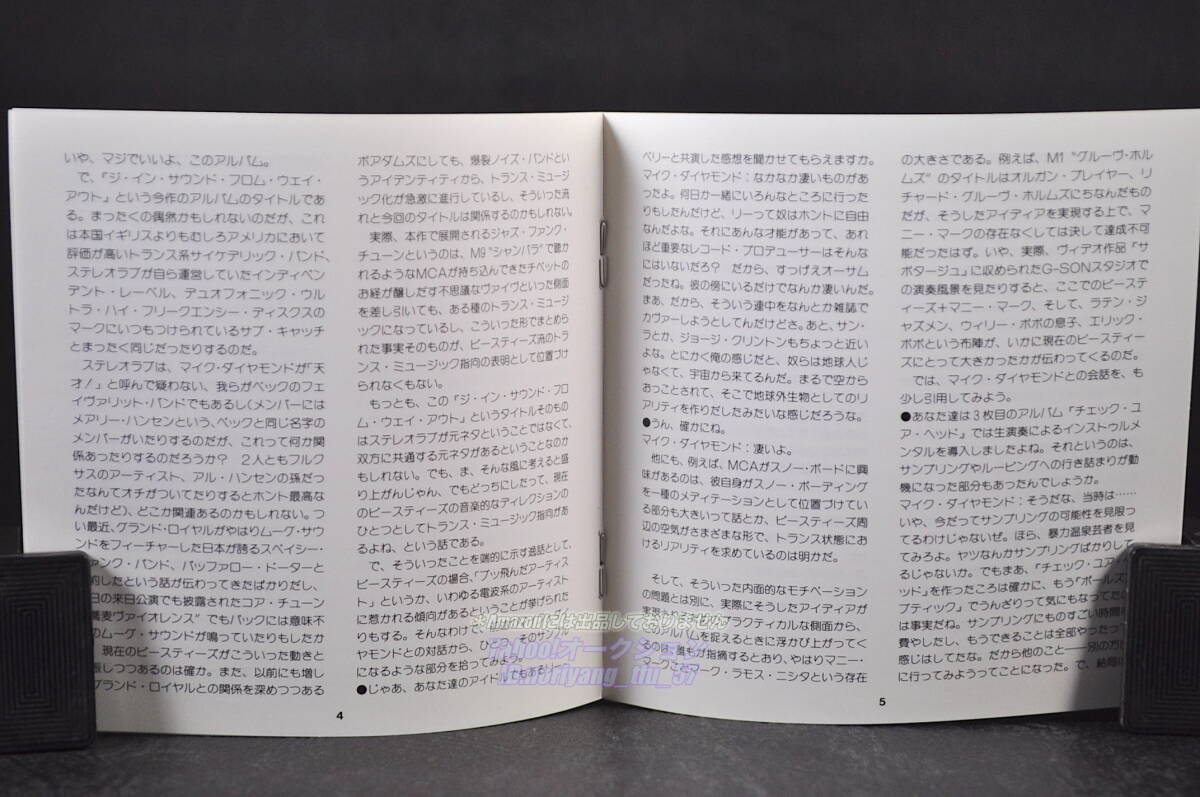 いや、マジでいいよ、このアルバム。
で、『ジ・イン・サウンド・フロム・ウェイ・
アウト』という今作のアルバムのタイトルであ
る。まったくの偶然かもしれないのだが、これ
は本国イギリスよりもむしろアメリカにおいて
評価が高いトランス系サイケデリック・バンド、
ステレオラブが自ら運営していたインディペン
デント・レーベル、デュオフォニック・ウル
トラ・ハイ・フリークエンシー・ディスクスの
マークにいつもつけられているサブ・キャッチ
とまったく同じだったりするのだ。
ステレオラブは、マイク・ダイヤモンドが「天
才!」と呼んで疑わない、我らがベックのフェ
イヴァリット・バンドでもあるし(メンバーには
メアリー・ハンセンという、ベックと同じ名字の
メンバーがいたりするのだが、これって何か関
係あったりするのだろうか? 2人ともフルク
サスのアーティスト、アル・ハンセンの孫だっ
たなんてオチがついてたりするとホント最高な
んだけど)、どこか関連あるのかもしれない。つ
い最近、グランド・ロイヤルがやはりムーグ・サウ
ンドをフィーチャーした日本が誇るスペイシー・
ァンク・バンド、バッファロー・ドーターと
約したという話が伝わってきたばかりだし、
日の来日公演でも披露されたコア・チューン
蕎麦ヴァイオレンス"でもバックには意味不
のムーグ・サウンドが鳴っていたりもしたか
現在のビースティーズがこういった動きと
振しつつあるのは確か。また、以前にも増し
グランド・ロイヤルとの関係を深めつつある
4
ボアダムズにしても、爆裂ノイズ・バンドとい
うアイデンティティから、トランス・ミュージ
ック化が急激に進行しているし、そういった流
れと今回のタイトルは関係するのかもしれない。
実際、本作で展開されるジャズ・ファンク・
チューンというのは、M9"シャンバラ"で聴か
れるようなMCAが持ち込んできたチベットの
お経が醸しだす不思議なヴァイヴといった側面
を差し引いても、ある種のトランス・ミュージ
ックになっているし、こういった形でまとめら
れた事実そのものが、ビースティーズ流のトラ
ンス・ミュージック指向の表明として位置づけ
られなくもない。
もっとも、この『ジ・イン・サウンド・フロ
ム・ウェイ・アウト』というタイトルそのもの
はステレオラブが元ネタということではなくて、
双方に共通する元ネタがあるということなのか
もしれない。でも、ま、そんな風に考えると盛
り上がんじゃん、でもどっちにしたって、現在
のビースティーズの音楽的なディレクションの
ひとつとしてトランス・ミュージック指向があ
るよね、という話である。
で、そういったことを端的に示す逸話として、
ビースティーズの場合、「ブッ飛んだアーティス
ト」というか、いわゆる電波系のアーティスト
に惹かれる傾向があるということが挙げられた
りもする。そんなわけで、
ヤモンドとの対話から、ひ
になるような部分を拾ってみよう。
●じゃあ、あなた達のアイドルでもあるリー・
ペリーと共演した感想を聞かせてもらえますか。
マイク・ダイヤモンド:なかなか凄いものがあ
ったよ。何日か一緒にいろんなところに行った
りもしたんだけど、リーって奴はホントに自由
なんだよな。それにあんな才能があって、あれ
ほど重要なレコード・プロデューサーはそんな
にはいないだろ? だから、すっげえオーサム
だったね。彼の傍にいるだけでなんか凄いんだ。
まあ、だから、そういう連中をなんとか雑誌で
カヴァーしようとしてんだけどさ。あと、サン・
ラとか、ジョージ・クリントンもちょっと近い
よな。とにかく俺の感じだと、奴らは地球人じ
ゃなくて、宇宙から来てるんだ。まるで空から
おっことされて、そこで地球外生物としてのリ
アリティを作りだしたみたいな感じだろうな。
●うん、確かにね。
マイク・ダイヤモンド:凄いよ。
他にも、例えば、MCAがスノー・ボードに興
味があるのは、彼自身がスノー・ボーディング
を一種のメディテーションとして位置づけてい
る部分も大きいって話とか、ビースティーズ周
辺の空気がさまざまな形で、トランス状態にお
けるリアリティを求めているのは明かだ。
そして、そういった内面的なモチベーション
の問題とは別に、実際にそうしたアイディアが
実現されるプラクティカルな側面から、
このアルバムを捉えるときに浮かび上がってく
るのは、誰もが指摘するとおり、やはりマニー・
マークことマーク・ラモス・ニシタという存在
の大きさである。例えば、M1"グルーヴ・ホル
ムズ"のタイトルはオルガン・プレイヤー、リ
チャード・グルーヴ・ホルムズにちなんだもの
だが、そうしたアイディアを実現する上で、マ
ニー・マークの存在なくしては決して達成不可
能だったはず。いや、実際、ヴィデオ作品『サ
ボタージュ』に収められたG-SONスタジオで
の演奏風景を見たりすると、ここでのビーステ
ィーズ+マニー・マーク、そして、ラテン・ジ
ャズメン、ウィリー・ボボの息子、エリック・
ボボという布陣が、いかに現在のビースティー
ズにとって大きかったかが伝わってくるのだ。
では、マイク・ダイヤモンドとの会話を、も
少し引用してみよう。
●あなた達は3枚目のアルバム『チェック・ユ
ア・ヘッド』では生演奏によるインストゥルメ
ンタルを導入しましたよね。それというのは、
サンプリングやルーピングへの行き詰まりが動
機になった部分もあったんでしょうか。
マイク・ダイヤモンド:そうだな、当時は……
いや、今だってサンプリングの可能性を見限っ
てるわけじゃないぜ。ほら、暴力温泉芸者を見
てみろよ。ヤツなんかサンプリングばかりして
るじゃないか。でもまあ、『チェック・ユア・
ッド』を作ったころは確かに、もう『ポールズ
ブティック』でうんざりって気にもなってた
は事実だね。サンプリングにものすごい時間
費やしたし、もうできることは全部やったっ
感じはしてたな。だから他のこと──別の方
に行ってみようってことになった。で、結局
5
※Amazonには出品しておりません
Yahoo!オークション